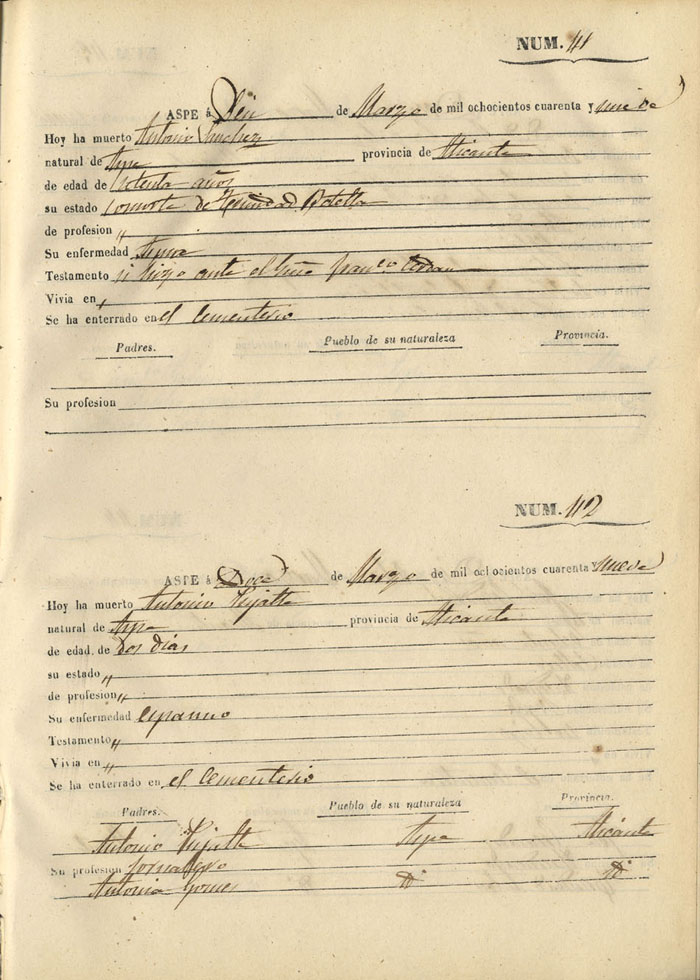 NUM. 41
ASPE á Diez de Marzo de mil ochocientos cuarenta y nueve
Hoy ha muerto Antonio Sanchez
natural de Aspe provincia de Alicante
de edad de setenta años
su estado consorte de Trinidad Botella
de profesion "
Su enfermedad
Testamento si hizo ante el franco
Vivia en "
Se ha enterrado en el Cementerio
Padres. Pueblo de su naturaleza Provincia.
Su profesion
NUM. 42
ASPE á Doce de Marzo de mil ochocientos cuarenta y nueve
Hoy ha muerto Antonio
natural de Aspe provincia de Alicante
de edad de Dos dias
su estado "
de profesion "
Su enfermedad espasmo
Testamento "
Vivia en "
Se ha enterrado en el Cementerio
Padres. Pueblo de su naturaleza Provincia.
Antonio Aspe Alicante
Su profesion Jornalero
Antonia Gomes